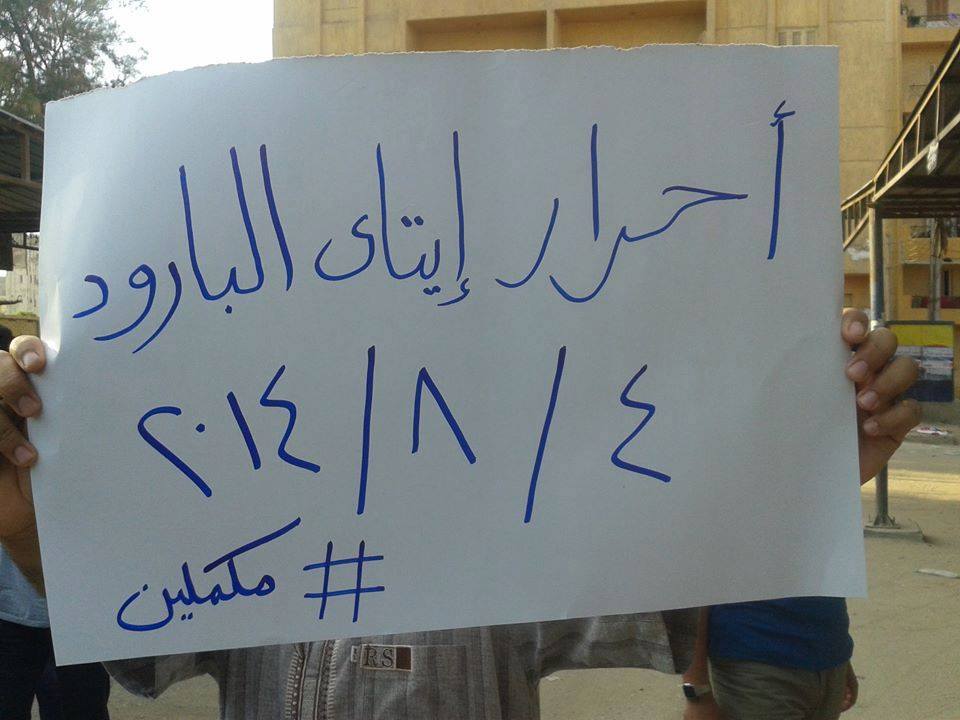 أحرار إيتاى البارود
٤ / ٨ / ٢٠١٤
# مكملين
RS